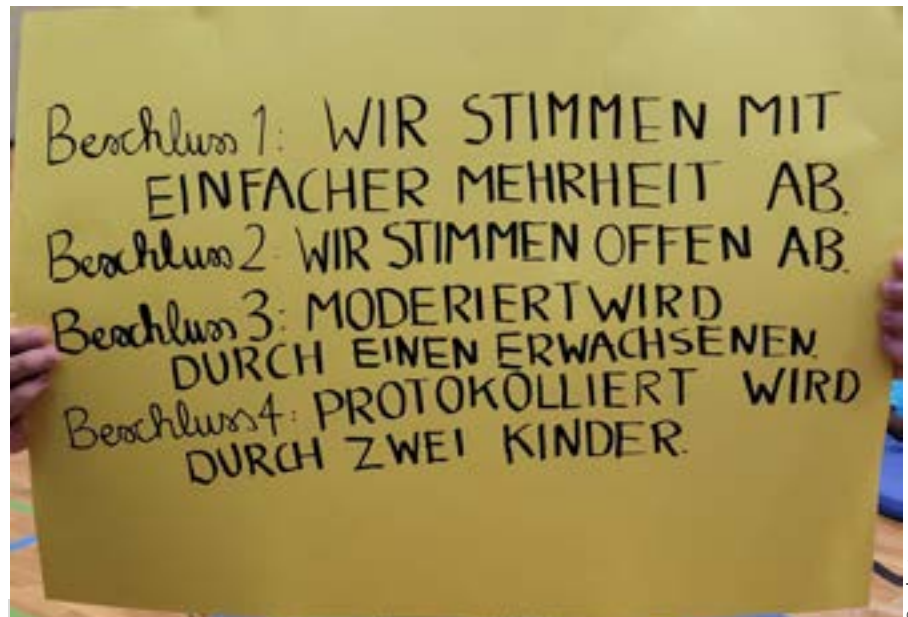 Beschluss 1: WIR STIMMEN MIT
EINFACHER MEHRHEIT AB.
Beschluss 2: WIR STIMMEN OFFEN AB.
Beschluss 3: MODERIERT WIRD
DURCH EINEN ERWACHSENEN.
Beschluss 4: PROTOKOLLIERT WIRD
DURCH ZWEI KINDER.